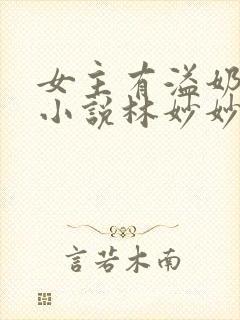 女主有溢奶
小说林妙妙
言若木南